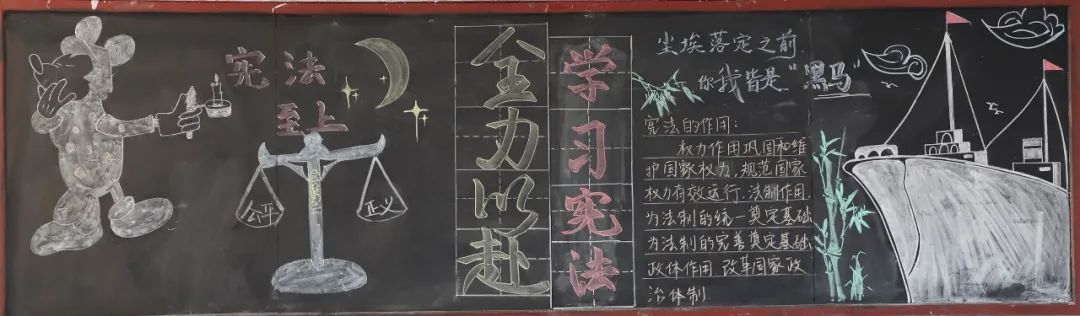 宪法
至上
公平
正义
全力以赴
学习宪法
尘埃落定之前
你我皆是"黑马"
宪法的作用:
权力作用巩固和维
护国家权力,规范国家
权力有效运行,法制作用
为法制的统一奠定基础
为法制的完善奠定基础
政体作用 改革国家政
治体制